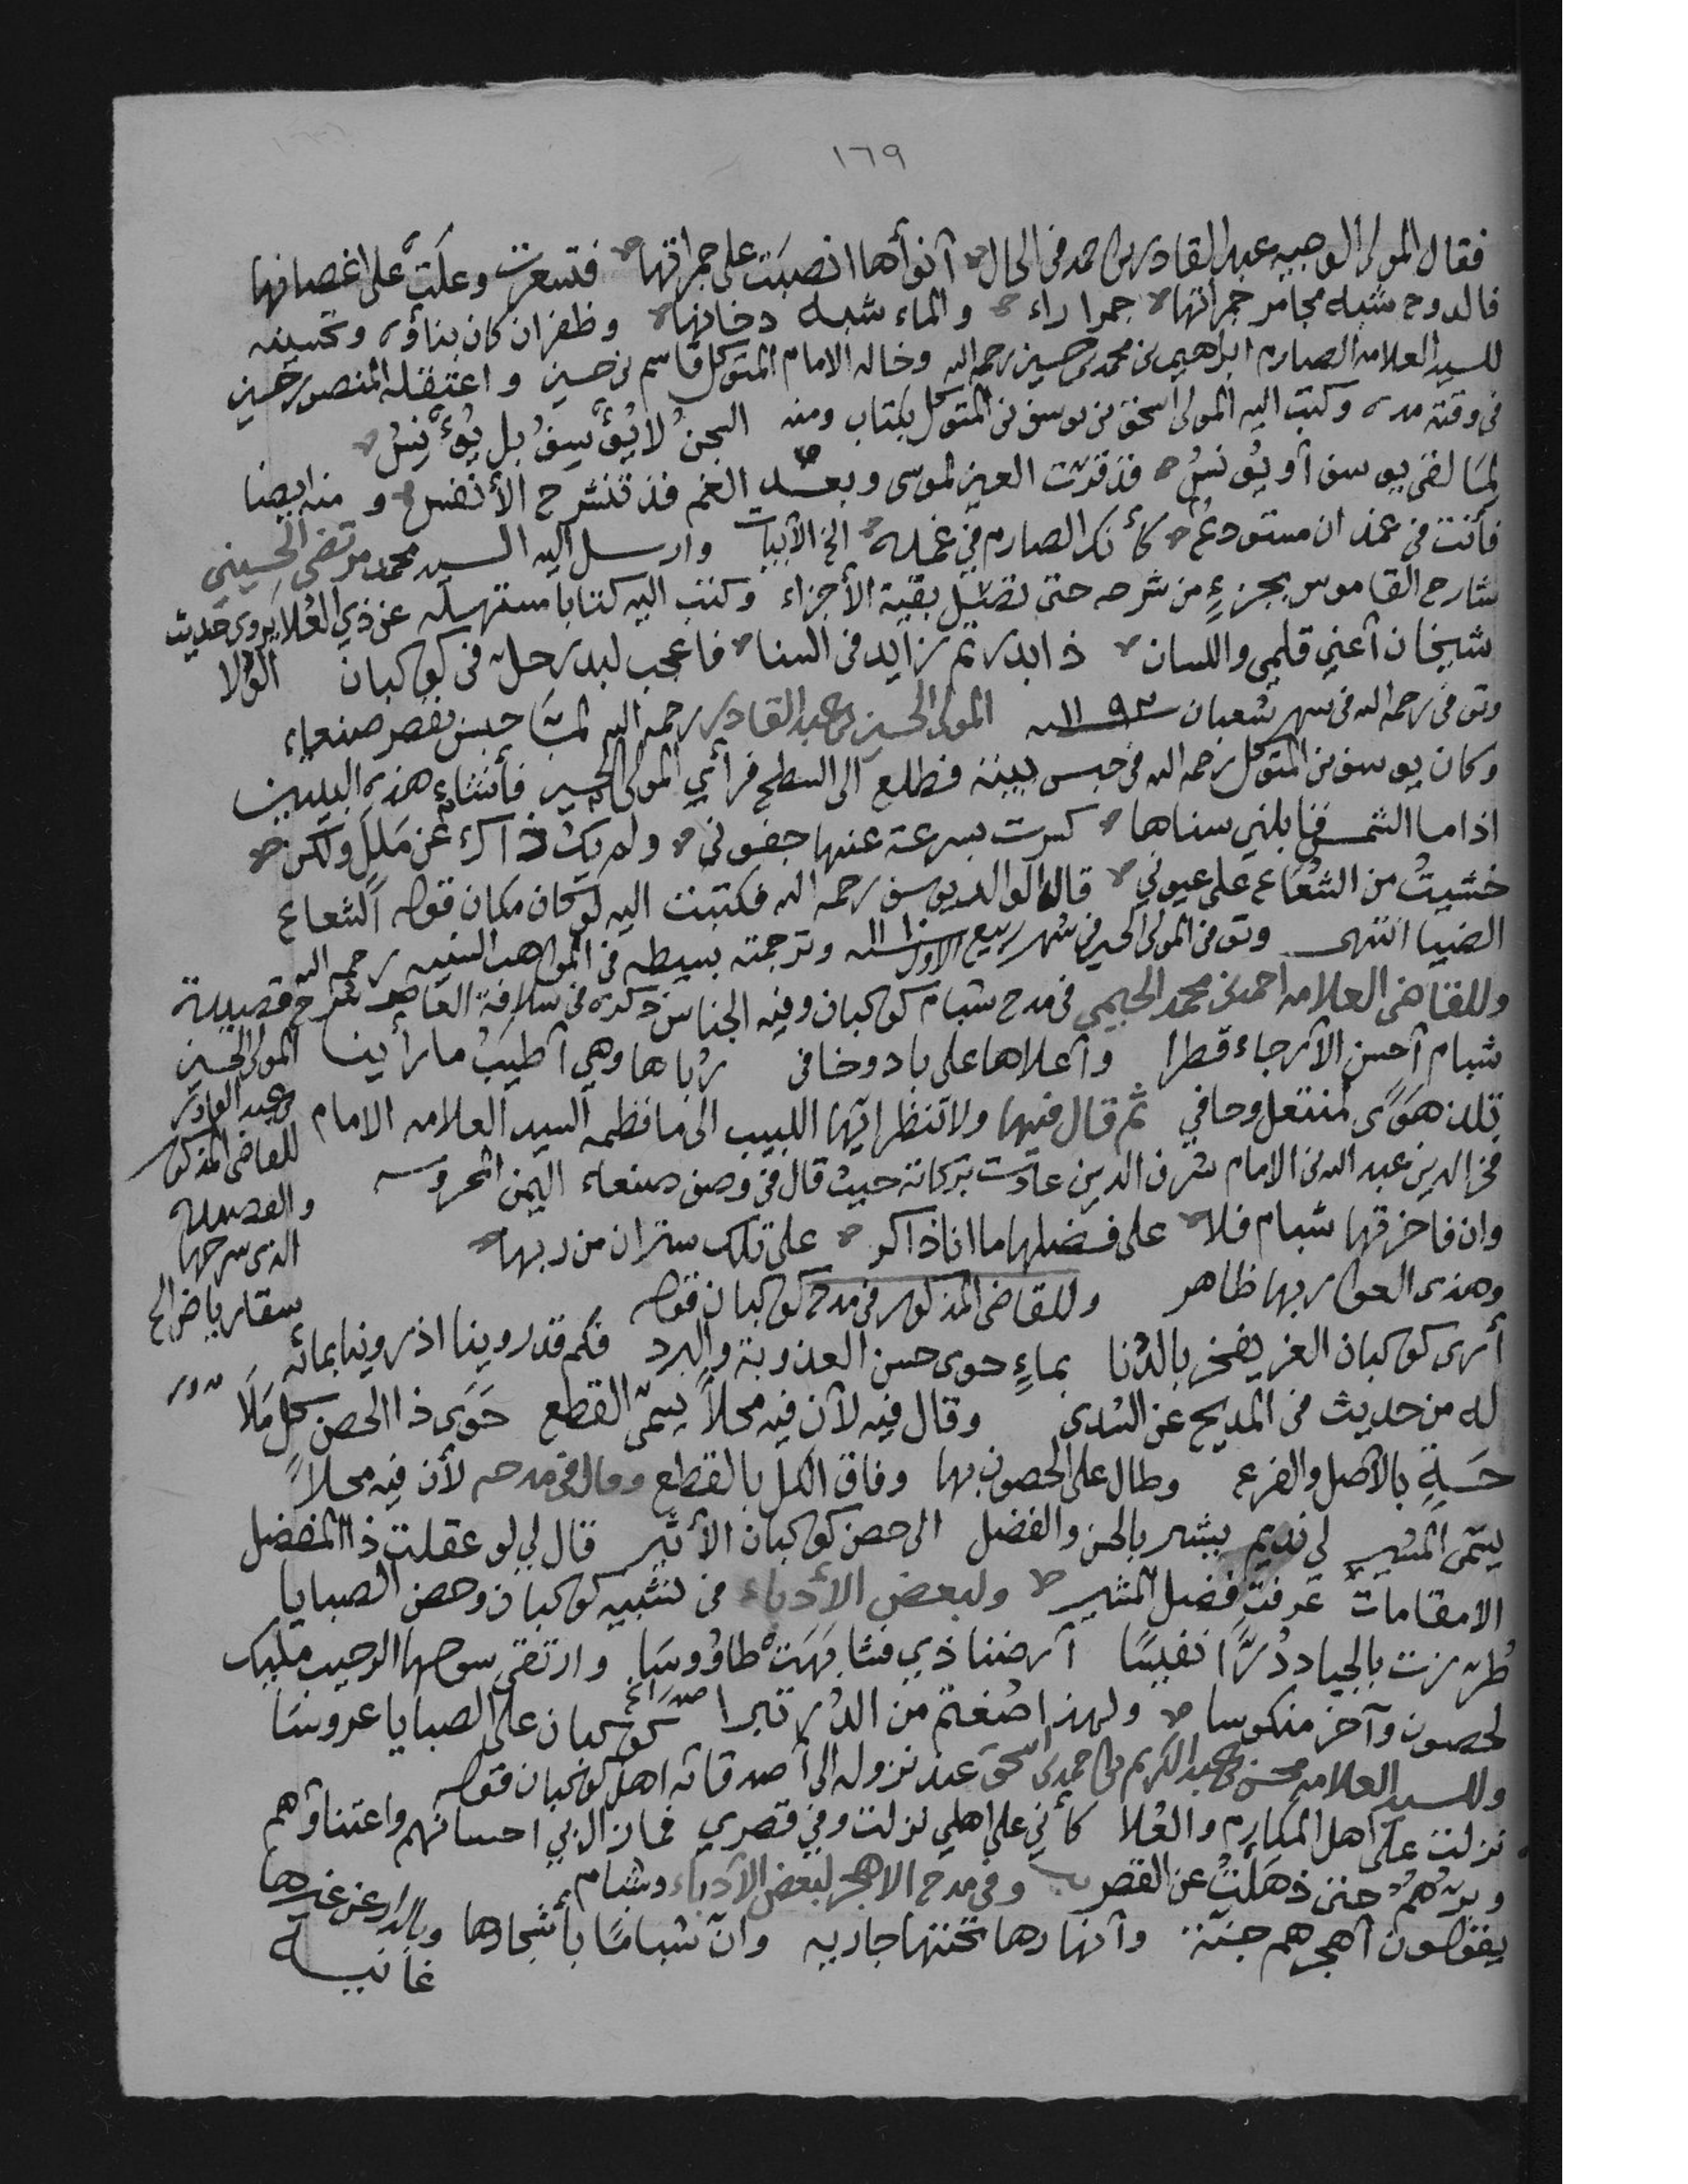 ١٦٩
فقال المولى الوجيه عبد القادر بن احمد في الحال آنوأها انصبَت على جمراتها فتسعرت وعلَت على اغصانها
فالدوح شبه مجامر جمراتها جمرا راء والماء شبه دخانها وظفران كان بناؤه وتحسينه
للسيد العلامه الصارم ابراهيم بن محمد بن حسين رحمه الله وخاله الامام المتوكل قاسم بن حسين واعتقله المنصور حسين
في وقته مده وكتب اليه المولى اسحق بن يوسف بن المتوكل بكتاب ومنه السجنُ لا يُؤسِفُ بل يُؤنِسُ
لمَا لقى يوسف أو يُونسُ قد قرّت العين لموسى وبعد الغم قد تنشرح الأنفس و منه ايضا
فأنت في غمدان مستودعٌ كأنك الصارم في غمده الخ الأبيات وارسل اليه السيد محمد مرتضى الحسيني
شارح القاموس بجزءٍ من شرحه حتى تصل بقية الأجزاء وكتب اليه كتابا مستهله عن ذي العُلا يروى حديث
شيخان أعني قلمي واللسان ذا بدر تم زايد في السنا فاعجب لبدر حل في كوكبان الوُلا
وتوفى رحمه الله في شهر شعبان ١١٩٣ـنه المولى الحسين بن عبد القادر رحمه الله لمّا حبس بقصر صنعاء
وكان يوسف بن المتوكل رحمه الله في حبس ببيته فطلع الى السطح فرأي المولى الحسين فأنشاء هذه البيتين
اذا ما الشمس قابلني سناها كسرت بسرعة عنها جفوني ولم يك ذاك عن مَلَلِ ولكن
خشيتُ من الشعَاع على عيوني قال الوالد يوسف رحمه الله فكتبت اليه لو كان مكان قوله الشعاع
الضيا انتهى وتوفى المولى الحسين في شهر ربيع الاول ـنه وترجمته بسيطه في المواهب السنيه رحمه الله
وللقاضي العلامه احمد بن محمد الحيمي في مدح شبام كوكبان وفيه الجناس ذكره في سلافة العاصر شرح قصيدة
شبام أحسن الأرجاء قطرا وأعلاها على باد وخافى رُباها وهي أطيبُ ما رأينا المولى الحسين
تلذ هوًى لمنتعل وحافي ثم قال فيها ولا تنظر ايها اللبيب الى ما نظمه السيد العلامه الامام
بن عبد القادر
للقاضي المذكور
والقصيده
الذي شرحها
سقا رياض الخ
فخر الدين عبد الله بن الامام شرف الدين عادت بركاته حيث قال في وصف صنعاء اليمن المحروسه
وان فاخرتها شبام فلا على فضلها ما انا ذاكر على تلك ستران من ربها
وهذى العوار بها ظاهر وللقاضي المذكور في مدح كوكبان قوله
أرى كوكبان الغر يفخر بالدُنا بماءٍ حوى حسن العذوبة والبرد فكم قد روينا اذ روينا بمائه
له من حديث في المديح عن السُدى وقال فيه لأن فيه محلاً يسمّى القطع حَوَى ذا الحصن كل مَلَا
حَسَةٍ بالأصل والفرع وطال على الحصون بها وفاق الكل بالقطع وقال في مدحه لأن فيه محلاً
يسمّى المشير لي نديم يشير بالحسن والفضل الى حصن كوكبان الأثير قال لي لو عقلت ذا المفضل
الامقامات عرفت فضل المشير ولبعض الأدباء في تشبيه كوكبان وحصن الصبايا
طُرزت بالجياد دُرًّا نفيسًا أرضنا ذي فشابَهَتْ طاؤوسَا وارتقى سوحها الرحيب مليك
لحصون وآخر منكوسا ولهذا صُغتم من الدُر تبرا كوكبان على الصبايا عروسَا
وللسيد العلامه محسن بن عبد الكريم بن احمد بن اسحق عند نزوله الى أصدقائه اهل كوكبان قوله
نزلت على اهل المكارم والعُلا كأني على اهلي نزلت وفي قصري فما زال بي احسانهم واعتناؤهم
وبرُهمُ حتى ذهلتُ عن القصر وفي مدح الاهجر لبعض الأدباء وشبام
يقولون أهجرهم جنّة وأنهارها تحتها جاريه وان شبامًا بأشجارها وبالدار عن غيرها
غانيـة